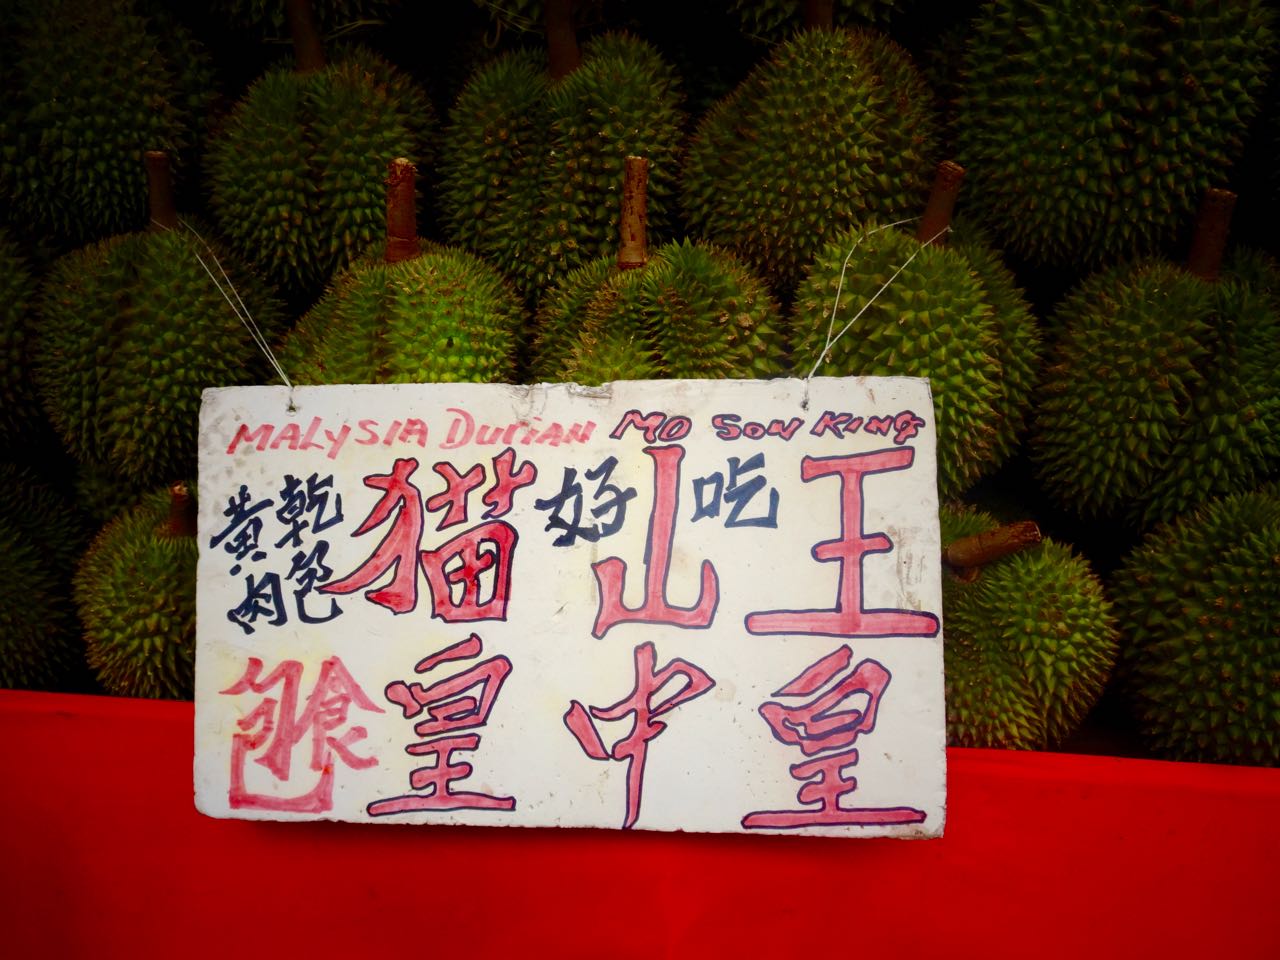 MALYSIA DURIAN MO SOW KING
黃乾
肉包
猫山王
好吃
包食
皇中皇